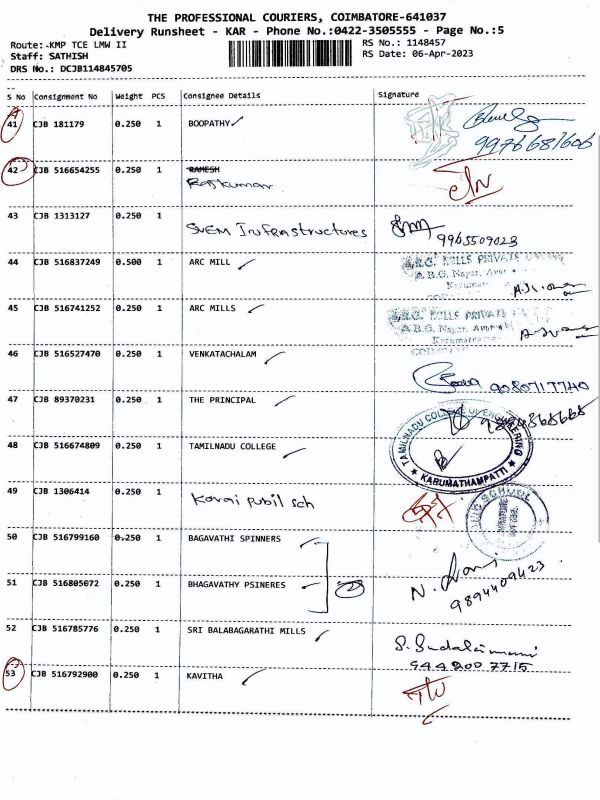 THE PROFESSIONAL COURIERS, COIMBATORE-641037
Delivery Runsheet - KAR - Phone No.:0422-3505555 - Page No.:5
Route:-KMP TCE LMW II RS No.: 1148457
Staff: SATHISH RS Date: 06-Apr-2023
DRS No.: DCJB114845705
S No Consignment No Weight PCS Consignee Details Signature
41 CJB 181179 0.250 1 BOOPATHY
9976681606
42 CJB 516654255 0.250 1 RAMESH
Rajkumar
43 CJB 1313127 0.250 1
SVEM Infrastructures
9965509023
44 CJB 516837249 0.500 1 ARC MILL
MILLS PRIVATE
A.R.G. Nagar,
45 CJB 516741252 0.250 1 ARC MILLS
MILLS PRIVATE
A.R.G. Nagar,
46 CJB 516527470 0.250 1 VENKATACHALAM
9080717740
47 CJB 89370231 1 0.250 1 THE PRINCIPAL
9894868668
48 CJB 516674809 0.250 1 TAMILNADU COLLEGE
TAMILNADU COLLEGE OF ENGINEERING
★ KARUMATHAMPATTI ★
49 CJB 1306414 0.250 1
Kovai pubil sch
SCHOOL
50 CJB 516799160 0.250 1 BAGAVATHI SPINNERS
51 CJB 516805072 0.250 1 BHAGAVATHY PSINERES 2
N.
9894409423
52 CJB 516785776 0.250 1 SRI BALABAGARATHI MILLS
S. Sudalaimani
9448007715
53 CJB 516792900 0.250 1 KAVITHA